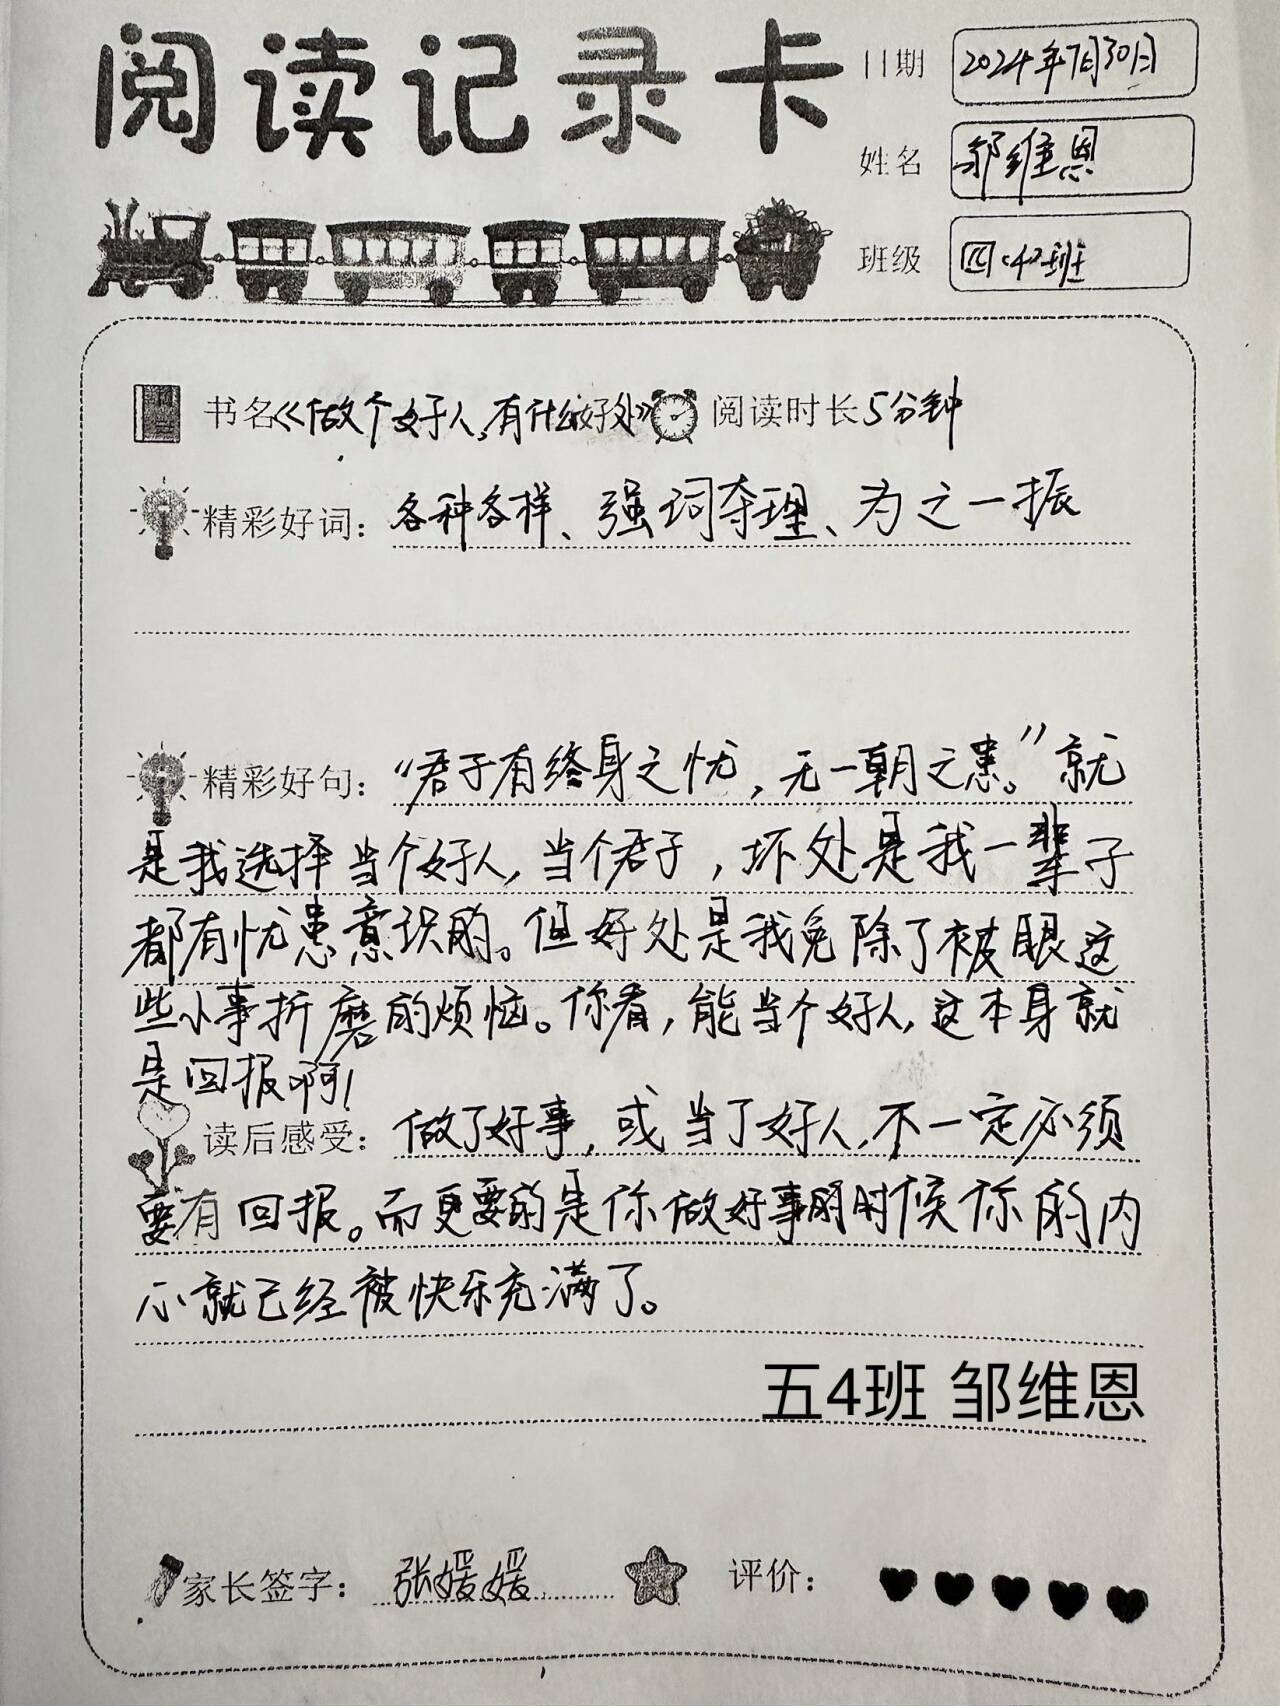 阅读记录卡
日期 2024年7月30日
姓名 邹维恩
班级 四(4)班
书名《做个好人,有什么好处》 阅读时长 5分钟
精彩好词: 各种各样、强词夺理、为之一振
精彩好句: “君子有终身之忧,无一朝之患。”就
是我选择当个好人,当个君子,坏处是我一辈子
都有忧患意识的。但好处是我免除了被眼这
些小事折磨的烦恼。你看,能当个好人,这本身就
是回报啊!
读后感受: 做了好事,或当了好人,不一定必须
要有回报。而更要的是你做好事的时候你的内
心就已经被快乐充满了。
五4班 邹维恩
家长签字: 张媛媛 评价: